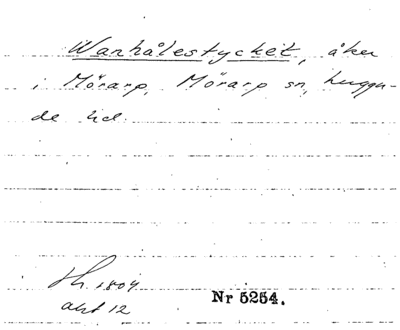 Wanhålestycket, åker
i Mörarp, Mörarp sn, Luggu-
de hd.
Lh. 1804
akt 12
Nr 5254.